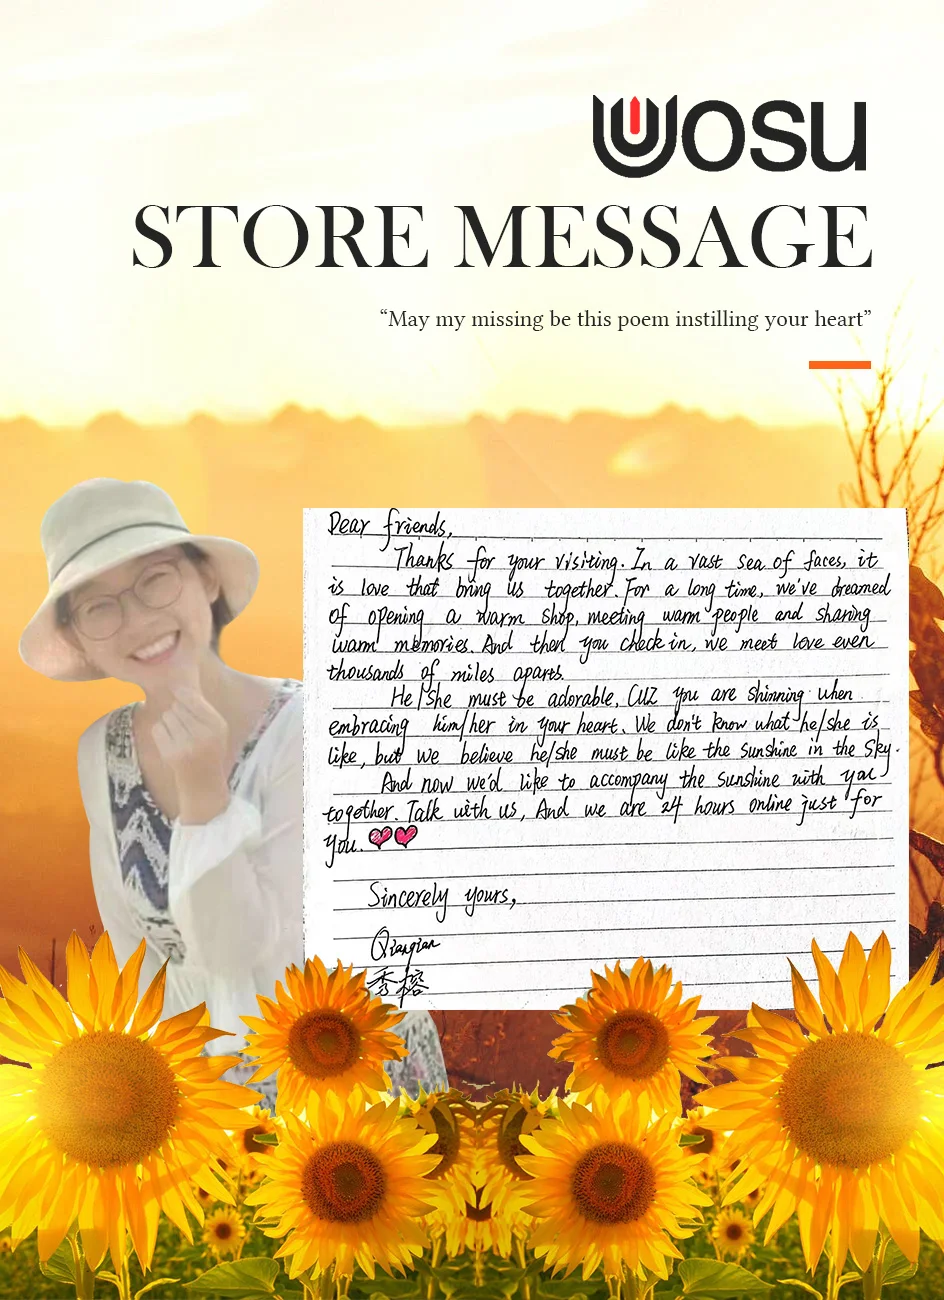 Uosu
STORE MESSAGE
“May my missing be this poem instilling your heart”
Dear friends,
Thanks for your visiting. In a vast sea of faces, it
is love that bring us together. For a long time, we've dreamed
of opening a warm shop, meeting warm people and sharing
warm memories. And then you check in, we meet love even
thousands of miles aparts.
He/She must be adorable, CUZ you are shinning when
embracing him/her in your heart. We don't know what he/she is
like, but we believe he/she must be like the sunshine in the sky.
And now we'd like to accompany the sunshine with you
together. Talk with us, And we are 24 hours online just for
you.
Sincerely yours,
Qianqian
秀榕